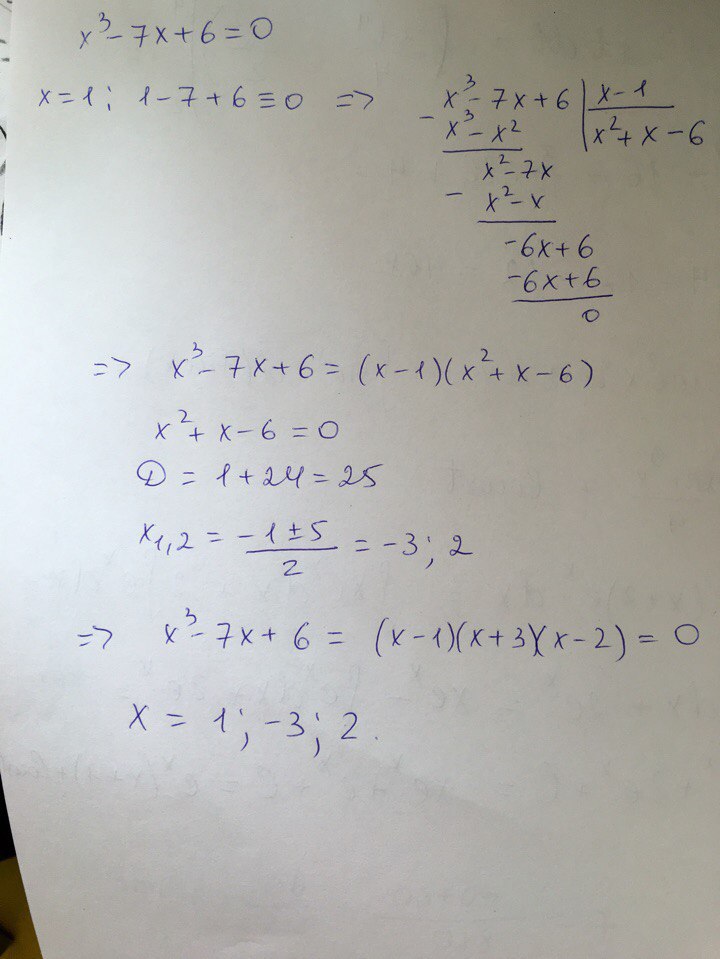 x³ - 7x + 6 = 0
x = 1; 1 - 7 + 6 ≡ 0 =>
x³ - 7x + 6 | x - 1
- x³ - x² | x² + x - 6
x² - 7x
- x² - x
-6x + 6
-6x + 6
0
=> x³ - 7x + 6 = (x - 1)(x² + x - 6)
x² + x - 6 = 0
D = 1 + 24 = 25
x₁,₂ = (-1 ± 5)/2 = -3; 2
=> x³ - 7x + 6 = (x - 1)(x + 3)(x - 2) = 0
x = 1; -3; 2.